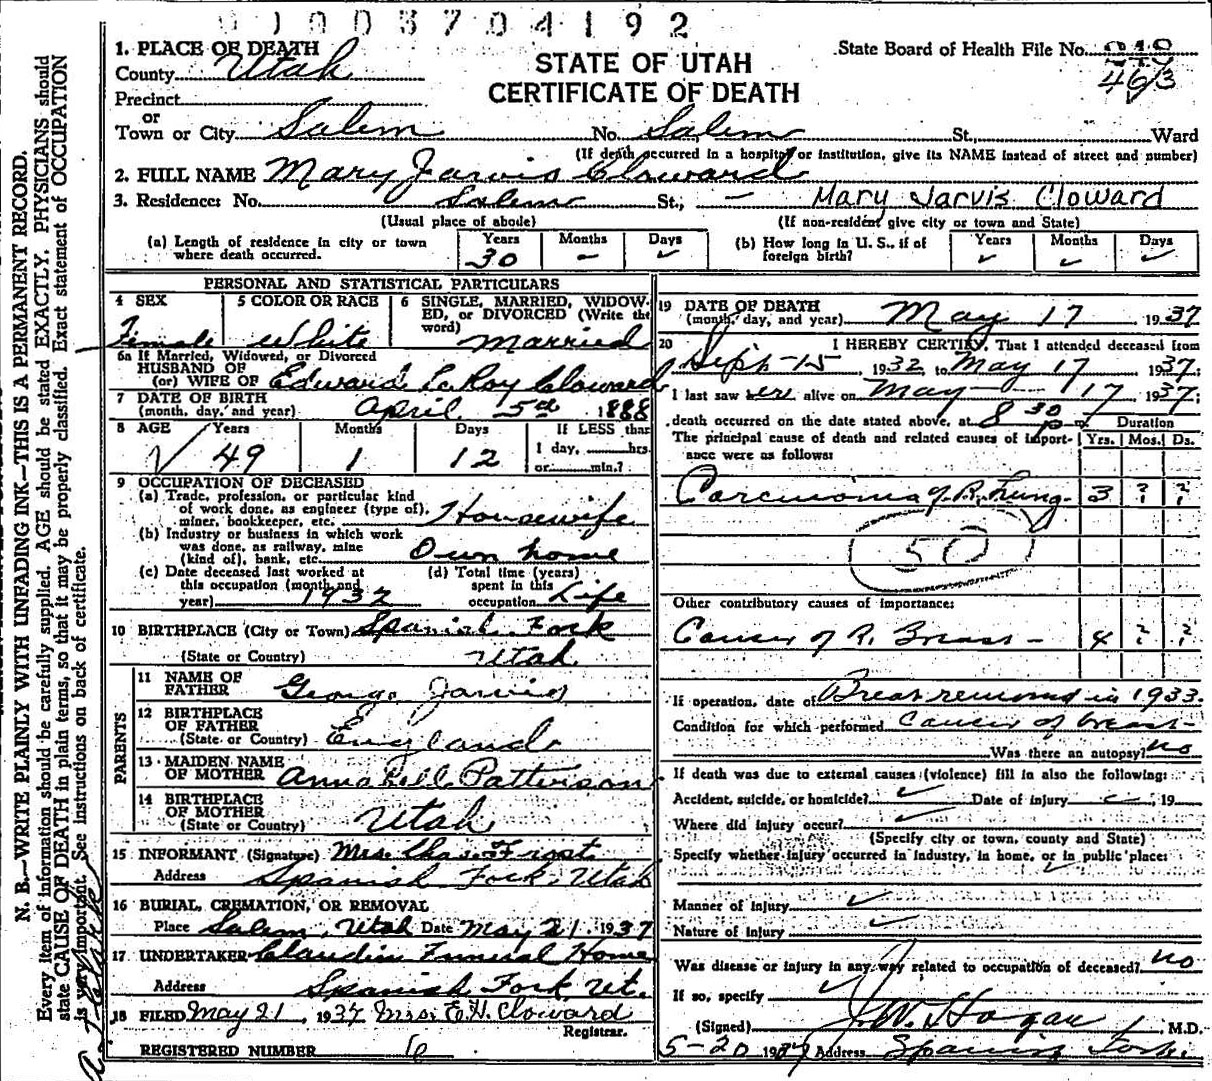 0003704192
1. PLACE OF DEATH
County Utah
Precinct
or
Town or City Salem No. Salem St. Ward
STATE OF UTAH
CERTIFICATE OF DEATH
State Board of Health File No.
463
(If death occurred in a hospital or institution, give its NAME instead of street and number)
2. FULL NAME Mary Jarvis Cloward
3. Residence: No. Salem St., — Mary Jarvis Cloward
(Usual place of abode) (If non-resident give city or town and State)
(a) Length of residence in city or town where death occurred. Years 30 Months - Days ✓
(b) How long in U. S., if of foreign birth? Years ✓ Months ✓ Days ✓
PERSONAL AND STATISTICAL PARTICULARS
4 SEX Female
5 COLOR OR RACE White
6 SINGLE, MARRIED, WIDOWED, or DIVORCED (Write the word) Married
6a If Married, Widowed, or Divorced
HUSBAND OF
(or) WIFE OF Edward LeRoy Cloward
7 DATE OF BIRTH
(month, day, and year) April 5th 1888
8 AGE Years 49 Months 1 Days 12 If LESS than 1 day, hrs. or min.?
9 OCCUPATION OF DECEASED
(a) Trade, profession, or particular kind of work done, as engineer (type of), miner, bookkeeper, etc. Housewife
(b) Industry or business in which work was done, as railway, mine (kind of), bank, etc. Own home
(c) Date deceased last worked at this occupation (month and year) 1932
(d) Total time (years) spent in this occupation Life
10 BIRTHPLACE (City or Town) Spanish Fork
(State or Country) Utah
PARENTS
11 NAME OF FATHER George Jarvis
12 BIRTHPLACE OF FATHER
(State or Country) England
13 MAIDEN NAME OF MOTHER Anna bell Patterson
14 BIRTHPLACE OF MOTHER
(State or Country) Utah
15 INFORMANT (Signature) Mrs. Chas. Frost
Address Spanish Fork, Utah
16 BURIAL, CREMATION, OR REMOVAL
Place Salem, Utah Date May 21 1937
17 UNDERTAKER Claudin Funeral Home
Address Spanish Fork, Ut.
18 FILED May 21, 1937 Mrs. E. H. Cloward
Registrar.
REGISTERED NUMBER 6
19 DATE OF DEATH
(month, day, and year) May 17 1937
20 I HEREBY CERTIFY, That I attended deceased from
Sept-15, 1932 to May 17 1937;
I last saw her alive on May 17 1937;
death occurred on the date stated above, at 8 30 p
The principal cause of death and related causes of importance were as follows:
Duration
Yrs. Mos. Ds.
Carcinoma of R. Lung- 3 ? ?
50
Other contributory causes of importance:
Cancer of R. Breast - 4 ? ?
If operation, date of Breast removed in 1933.
Condition for which performed Cancer of breast-
Was there an autopsy? no
If death was due to external causes (violence) fill in also the following:
Accident, suicide, or homicide? ✓ Date of injury ✓, 19
Where did injury occur? ✓
(Specify city or town, county and State)
Specify whether injury occurred in industry, in home, or in public place:
✓
Manner of injury ✓
Nature of injury ✓
Was disease or injury in any way related to occupation of deceased? no
If so, specify ✓
(Signed) J. W. Hagan, M.D.
5-20 1937 Address Spanish Fork.
N. B.—WRITE PLAINLY WITH UNFADING INK—THIS IS A PERMANENT RECORD.
Every item of information should be carefully supplied. AGE should be stated EXACTLY. PHYSICIANS should
state CAUSE OF DEATH in plain terms, so that it may be properly classified. Exact statement of OCCUPATION
is very important. See instructions on back of certificate.